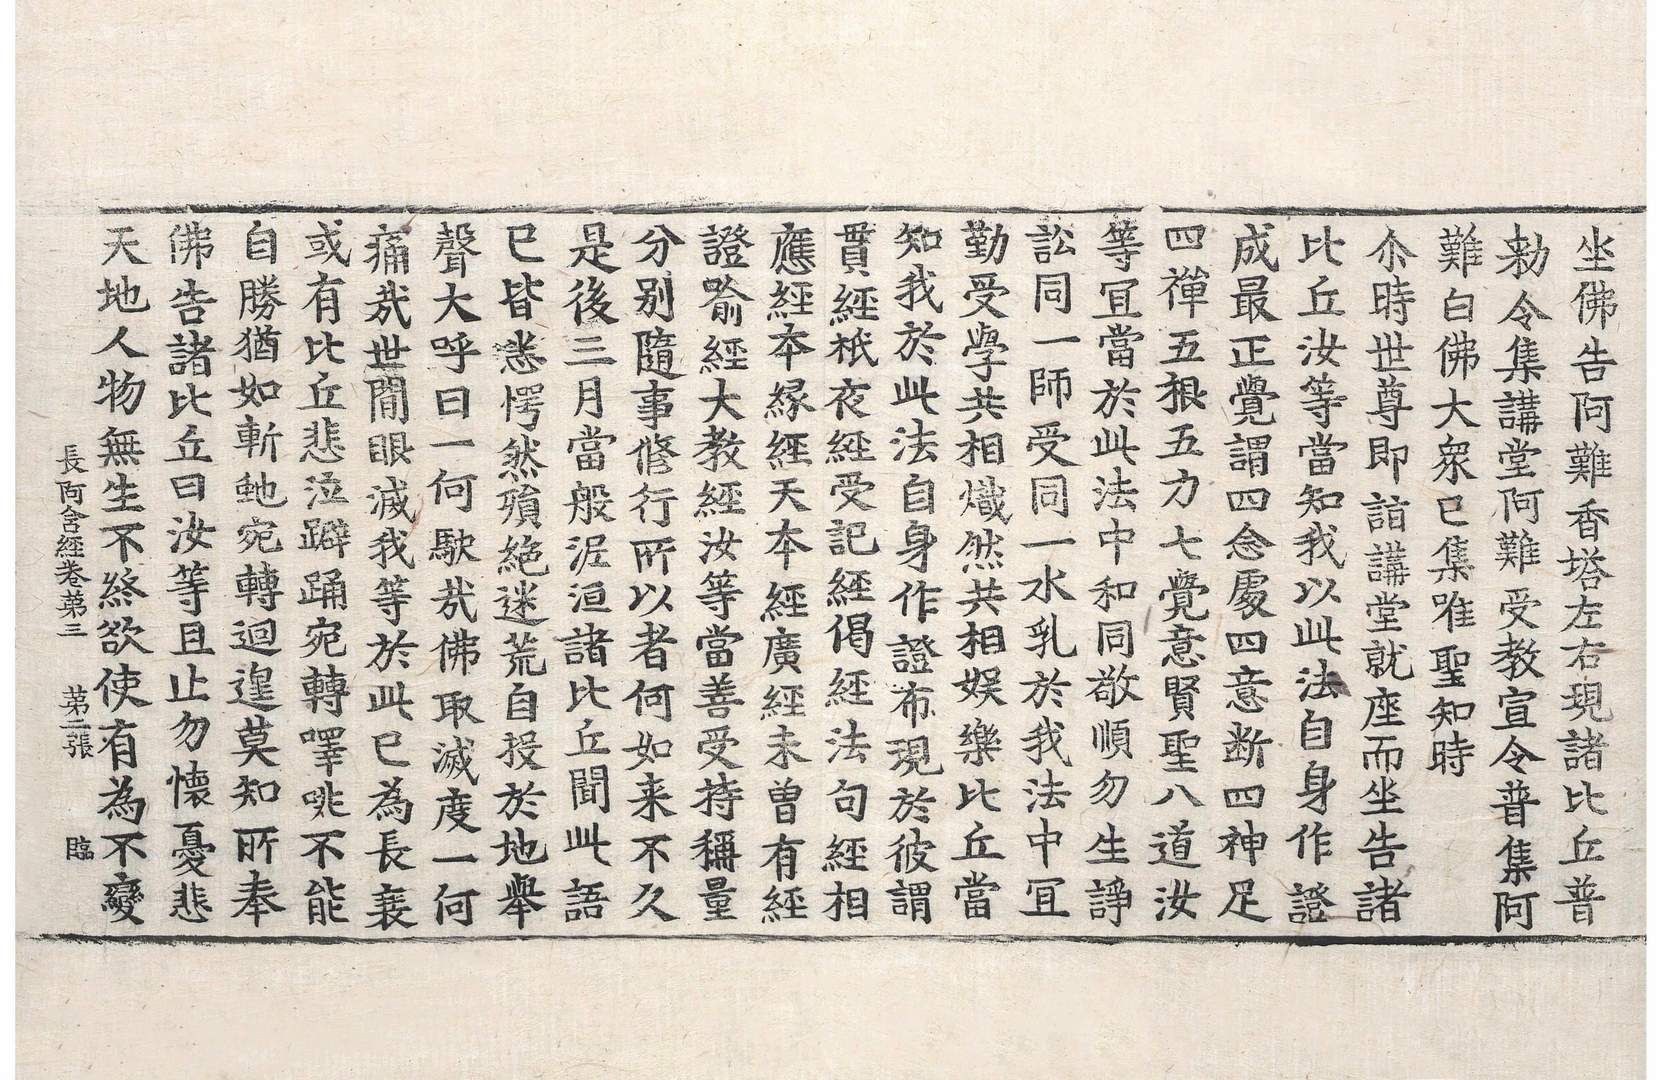 坐佛告阿難香塔左右現諸比丘普
勑令集講堂阿難受教宣令普集阿
難白佛大衆已集唯聖知時
尒時世尊即詣講堂就座而坐告諸
比丘汝等當知我以此法自身作證
成最正覺謂四念處四意断四神足
四禪五根五力七覺意賢聖八道汝
等冝當於此法中和同敬順勿生諍
訟同一師受同一水乳於我法中冝
勤受學共相熾然共相娛樂比丘當
知我於此法自身作證布現於彼謂
貫經祇夜經受記經偈經法句經相
應經本緣經天本經廣經未曽有經
證喻經大教經汝等當善受持稱量
分别隨事修行所以者何如来不久
是後三月當般泥洹諸比丘聞此語
已皆悉愕然殞絶迷荒自投於地舉
聲大呼曰一何駛㢤佛取滅度一何
痛㢤世間眼滅我等於此已為長衰
或有比丘悲泣躃踊宛轉嘷咷不能
自勝猶如斬虵宛轉迴遑莫知所奉
佛告諸比丘曰汝等且止勿懷憂悲
天地人物無生不終欲使有為不變
長阿含經卷苐三 第二張 臨